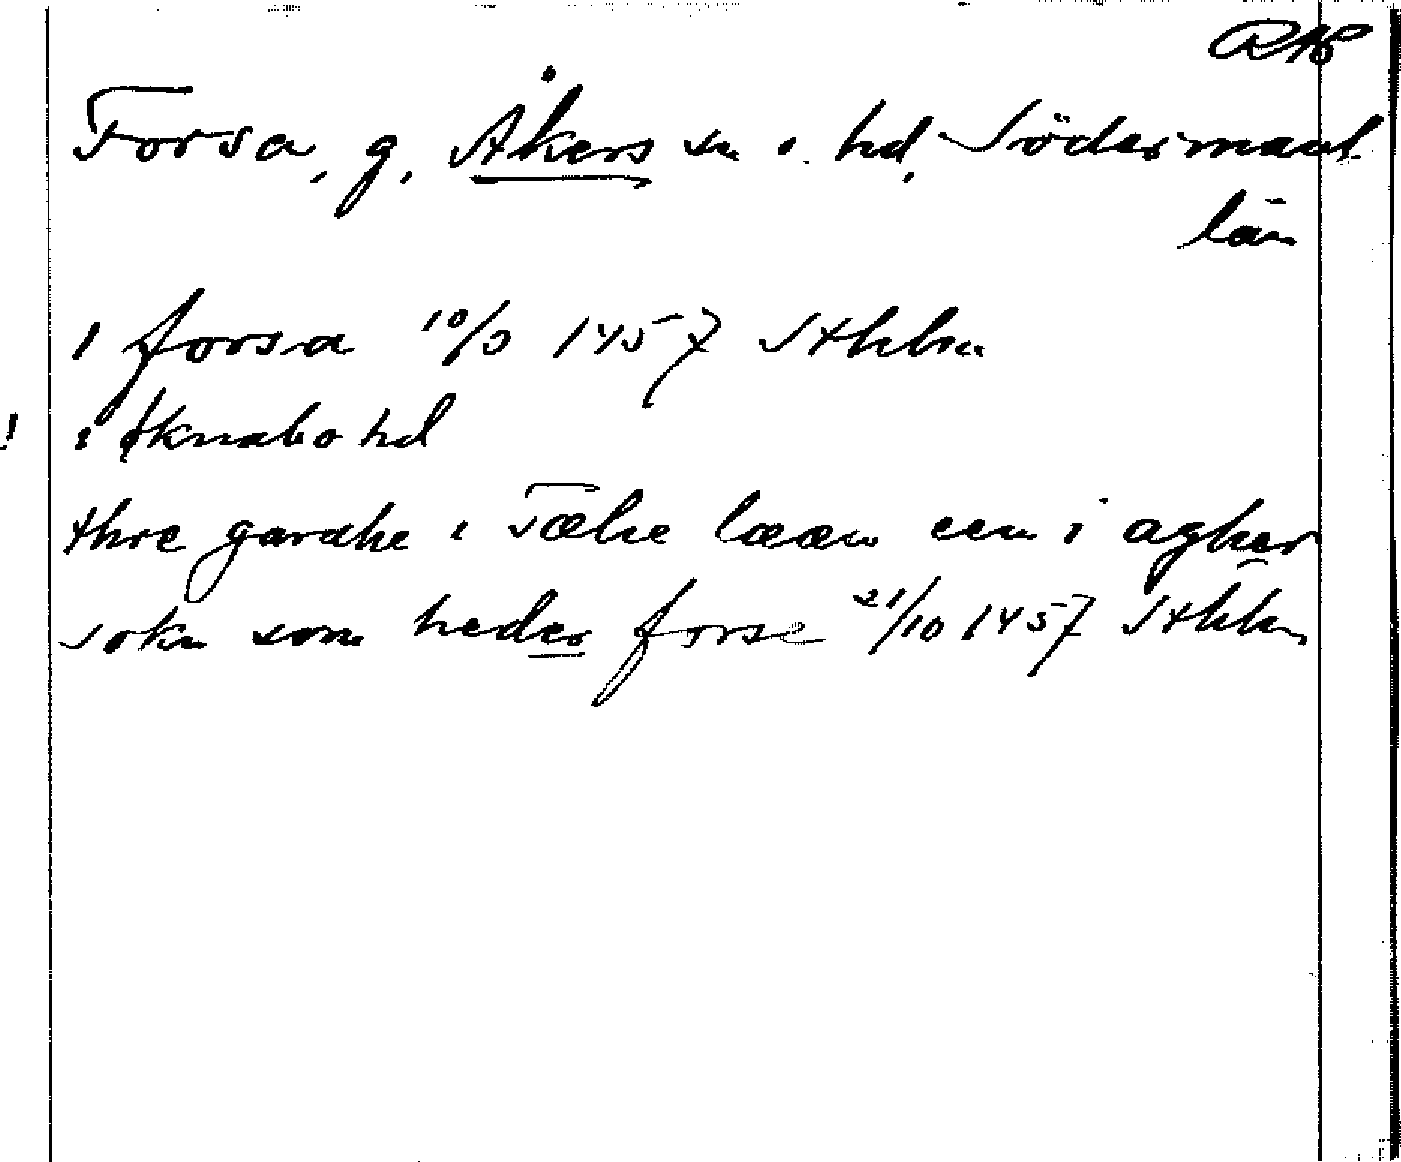 RAP
Forsa, g, Åkers sn o. hd, Södermanl
län
i forsa 10/3 1457 Sthlm
! i øknabo hd
thre gardhe i Tælie lææn een i agher
sokn som heder forse 21/10 1457 Sthlm